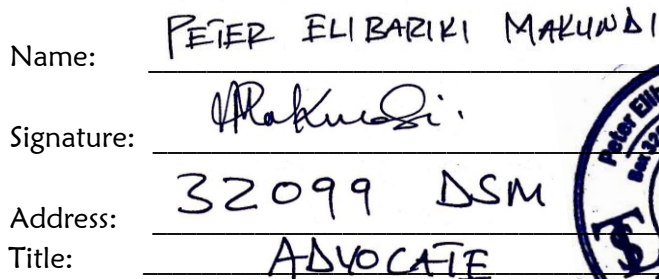 Name: PETER ELIBARIKI MAKUNDI
Signature: Makundi.
Address: 32099 DSM
Title: ADVOCATE
Peter Elib
Box 320